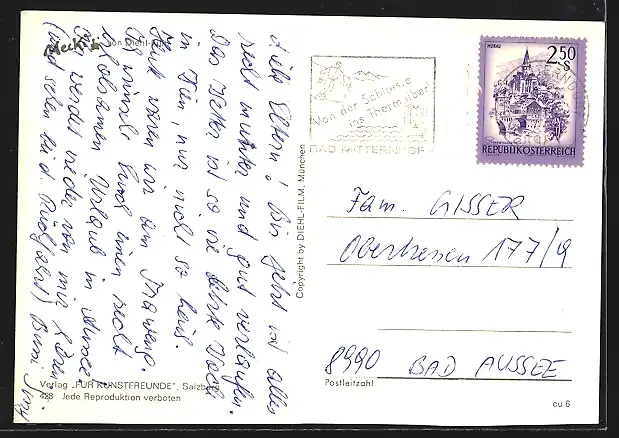 Mecki von Diehl-Film
Liebe Eltern! Bis jetzt ist alles
recht munter und gut verlaufen.
Das Wetter ist so wie letzte Woche
in Wien, nur nicht so heiß.
Heute waren wir im
Ich wünsche Euch einen recht
erholsamen Urlaub in Aussee
Ihr werdet wieder von mir hören
(und sehen bei Rückfahrt) Bussi
Verlag „FÜR KUNSTFREUNDE", Salzburg
423 Jede Reproduktion verboten
Copyright by DIEHL-FILM, München
Von der Schipiste
ins Thermalbad
BAD MITTERNDORF
MURAU
2.50
S
REPUBLIK ÖSTERREICH
Fam. GISSER
Obertressen 177/9
8990 BAD AUSSEE
Postleitzahl
cu 6